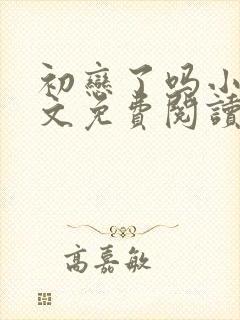 初戀了吗小
文免費閱讀
高嘉敏